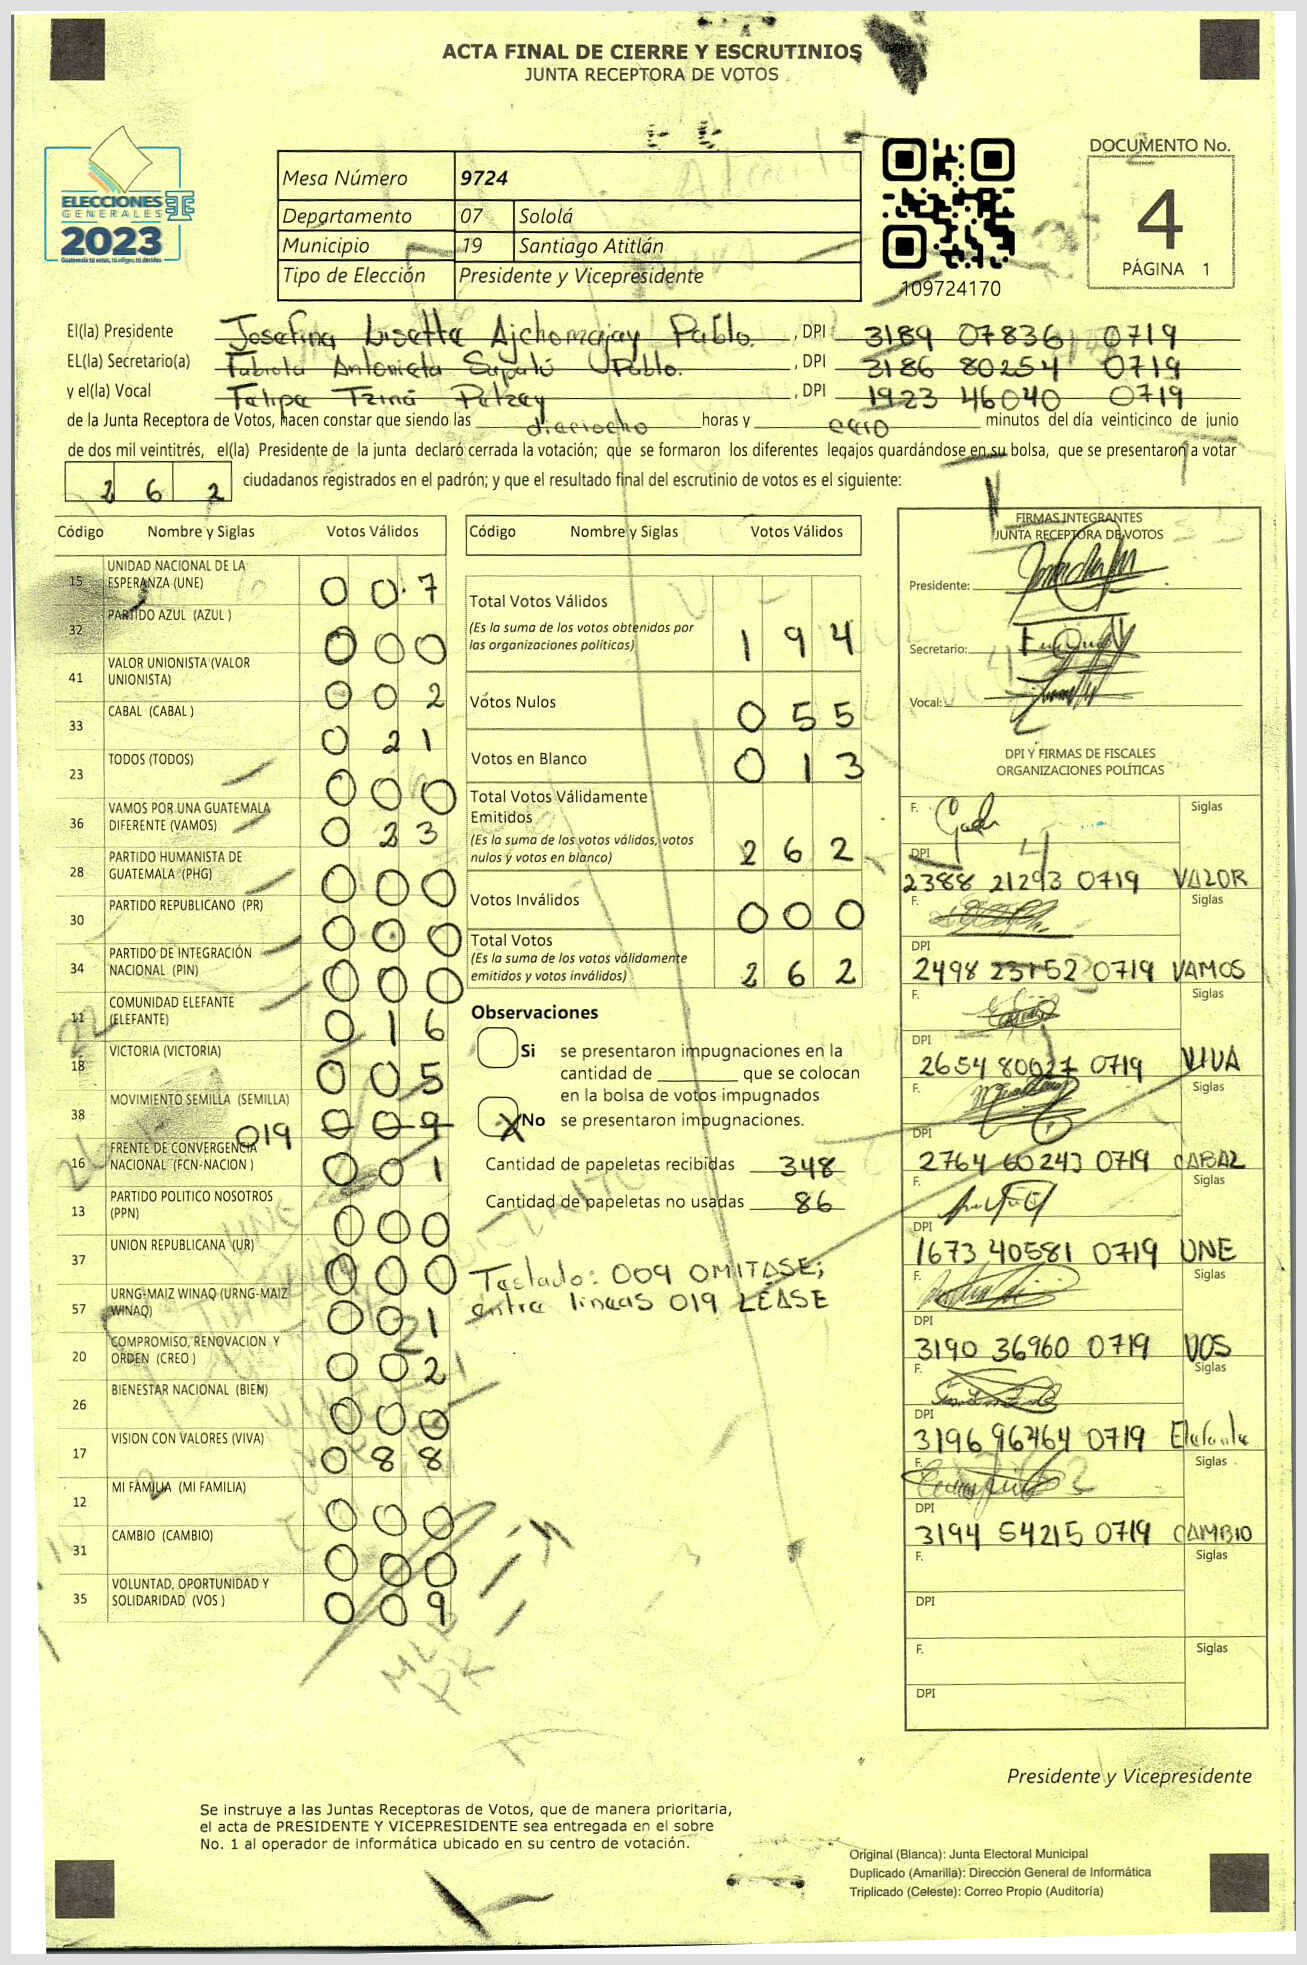 ACTA FINAL DE CIERRE Y ESCRUTINIOS
JUNTA RECEPTORA DE VOTOS
DOCUMENTO No.
4
PÁGINA 1
ELECCIONES
GENERALES
2023
Guatemala tú votas, tú eliges, tú decides
Mesa Número 9724
Departamento 07 Sololá
Municipio 19 Santiago Atitlán
Tipo de Elección Presidente y Vicepresidente
109724170
El(la) Presidente Josefina Lisette Ajchomajay Pablo. , DPI 3189 07836 0719
EL(la) Secretario(a) Fabiola Antonieta Pablo. , DPI 3186 80254 0719
y el(la) Vocal Felipa Tziná Petzey , DPI 1923 46040 0719
de la Junta Receptora de Votos, hacen constar que siendo las dieciocho horas y cero minutos del día veinticinco de junio
de dos mil veintitrés, el(la) Presidente de la junta declaró cerrada la votación; que se formaron los diferentes legajos guardándose en su bolsa, que se presentaron a votar
262 ciudadanos registrados en el padrón; y que el resultado final del escrutinio de votos es el siguiente:
Código Nombre y Siglas Votos Válidos
15 UNIDAD NACIONAL DE LA ESPERANZA (UNE) 007
32 PARTIDO AZUL (AZUL ) 000
41 VALOR UNIONISTA (VALOR UNIONISTA) 002
33 CABAL (CABAL ) 021
23 TODOS (TODOS) 000
36 VAMOS POR UNA GUATEMALA DIFERENTE (VAMOS) 023
28 PARTIDO HUMANISTA DE GUATEMALA (PHG) 000
30 PARTIDO REPUBLICANO (PR) 000
34 PARTIDO DE INTEGRACIÓN NACIONAL (PIN) 000
11 COMUNIDAD ELEFANTE (ELEFANTE) 016
18 VICTORIA (VICTORIA) 005
38 MOVIMIENTO SEMILLA (SEMILLA) 009
019
16 FRENTE DE CONVERGENCIA NACIONAL (FCN-NACION ) 001
13 PARTIDO POLITICO NOSOTROS (PPN) 000
37 UNION REPUBLICANA (UR) 000
57 URNG-MAIZ WINAQ (URNG-MAIZ WINAQ) 001
20 COMPROMISO, RENOVACION Y ORDEN (CREO ) 002
26 BIENESTAR NACIONAL (BIEN) 000
17 VISION CON VALORES (VIVA) 088
12 MI FAMILIA (MI FAMILIA) 000
31 CAMBIO (CAMBIO) 000
35 VOLUNTAD, OPORTUNIDAD Y SOLIDARIDAD (VOS ) 009
Código Nombre y Siglas Votos Válidos
Total Votos Válidos 194
(Es la suma de los votos obtenidos por
las organizaciones políticas)
Votos Nulos 055
Votos en Blanco 013
Total Votos Válidamente
Emitidos
(Es la suma de los votos válidos, votos
nulos y votos en blanco) 262
Votos Inválidos 000
Total Votos
(Es la suma de los votos válidamente
emitidos y votos inválidos) 262
Observaciones
Si se presentaron impugnaciones en la
cantidad de ________ que se colocan
en la bolsa de votos impugnados
X No se presentaron impugnaciones.
Cantidad de papeletas recibidas 348
Cantidad de papeletas no usadas 86
Testado: 009 OMITASE;
entre lineas 019 LEASE
FIRMAS INTEGRANTES
JUNTA RECEPTORA DE VOTOS
Presidente:
Secretario:
Vocal:
DPI Y FIRMAS DE FISCALES
ORGANIZACIONES POLÍTICAS
F. Siglas
DPI
2388 21293 0719 VALOR
F. Siglas
DPI
2498 23152 0719 VAMOS
F. Siglas
DPI
2654 80027 0719 VIVA
F. Siglas
DPI
2764 60243 0719 CABAL
F. Siglas
DPI
1673 40581 0719 UNE
F. Siglas
DPI
3190 36960 0719 VOS
F. Siglas
DPI
3196 96464 0719 Elefante
F. Siglas
DPI
3194 54215 0719 CAMBIO
F. Siglas
DPI
F. Siglas
DPI
Presidente y Vicepresidente
Se instruye a las Juntas Receptoras de Votos, que de manera prioritaria,
el acta de PRESIDENTE Y VICEPRESIDENTE sea entregada en el sobre
No. 1 al operador de informática ubicado en su centro de votación.
Original (Blanca): Junta Electoral Municipal
Duplicado (Amarilla): Dirección General de Informática
Triplicado (Celeste): Correo Propio (Auditoría)